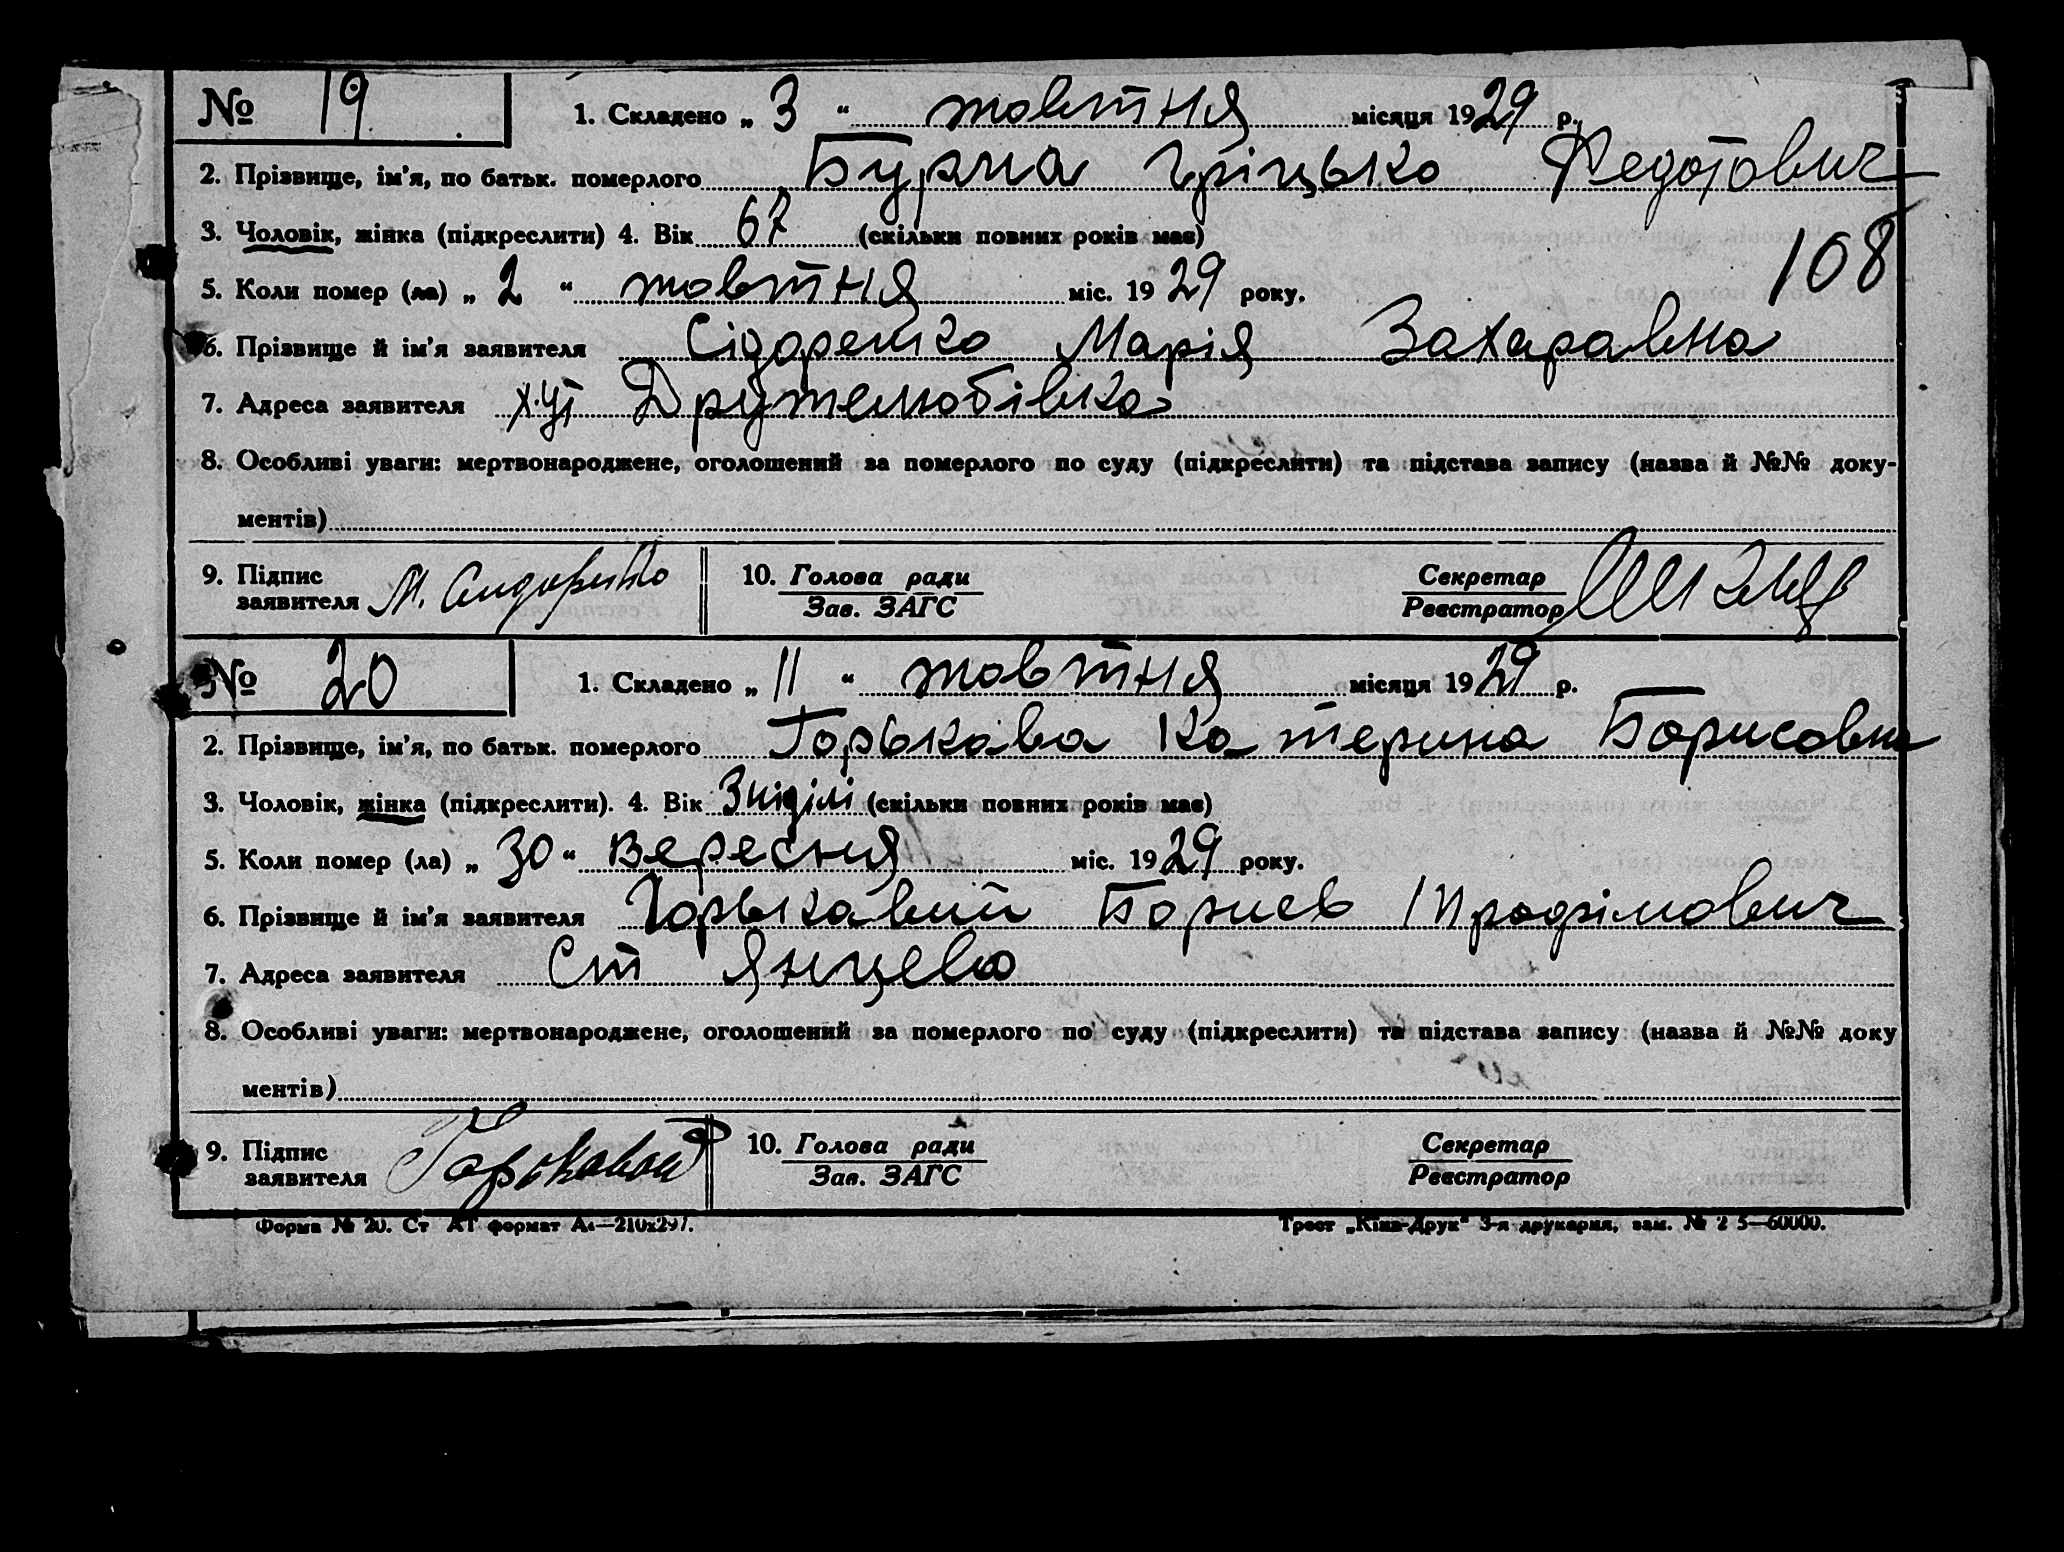 № 19 1. Складено „ 3 “ жовтня місяця 1929 р.
2. Прізвище, ім'я, по батьк. померлого Бурма Гріцько Федотович
3. Чоловік, жінка (підкреслити) 4. Вік 67 (скільки повних років має)
108
5. Коли помер (ла) „ 2 “ жовтня міс. 1929 року.
6. Прізвище й ім'я заявителя Сідоренко Марія Захаравна
7. Адреса заявителя хут Дружелюбівка
8. Особливі уваги: мертвонароджене, оголошений за померлого по суду (підкреслити) та підстава запису (назва й №№ доку-
ментів)
9. Підпис заявителя М. Сидоренко 10. Голова ради Секретар
Зав. ЗАГС Реєстратор
№ 20 1. Складено „ 11 “ жовтня місяця 1929 р.
2. Прізвище, ім'я, по батьк. померлого Горькава Катерина Борисовна
3. Чоловік, жінка (підкреслити). 4. Вік 3 нiділі (скільки повних років має)
5. Коли помер (ла) „ 30 “ вересня міс. 1929 року.
6. Прізвище й ім'я заявителя Горькавий Борис
7. Адреса заявителя Ст Янцево
8. Особливі уваги: мертвонароджене, оголошений за померлого по суду (підкреслити) та підстава запису (назва й №№ доку
ментів)
9. Підпис заявителя 10. Голова ради Секретар
Зав. ЗАГС Реєстратор
Форма № 20. Ст АТ формат А4—210х297. Трест „Київ-Друк“ 3-я друкарня, зам. № 2 5—60000.